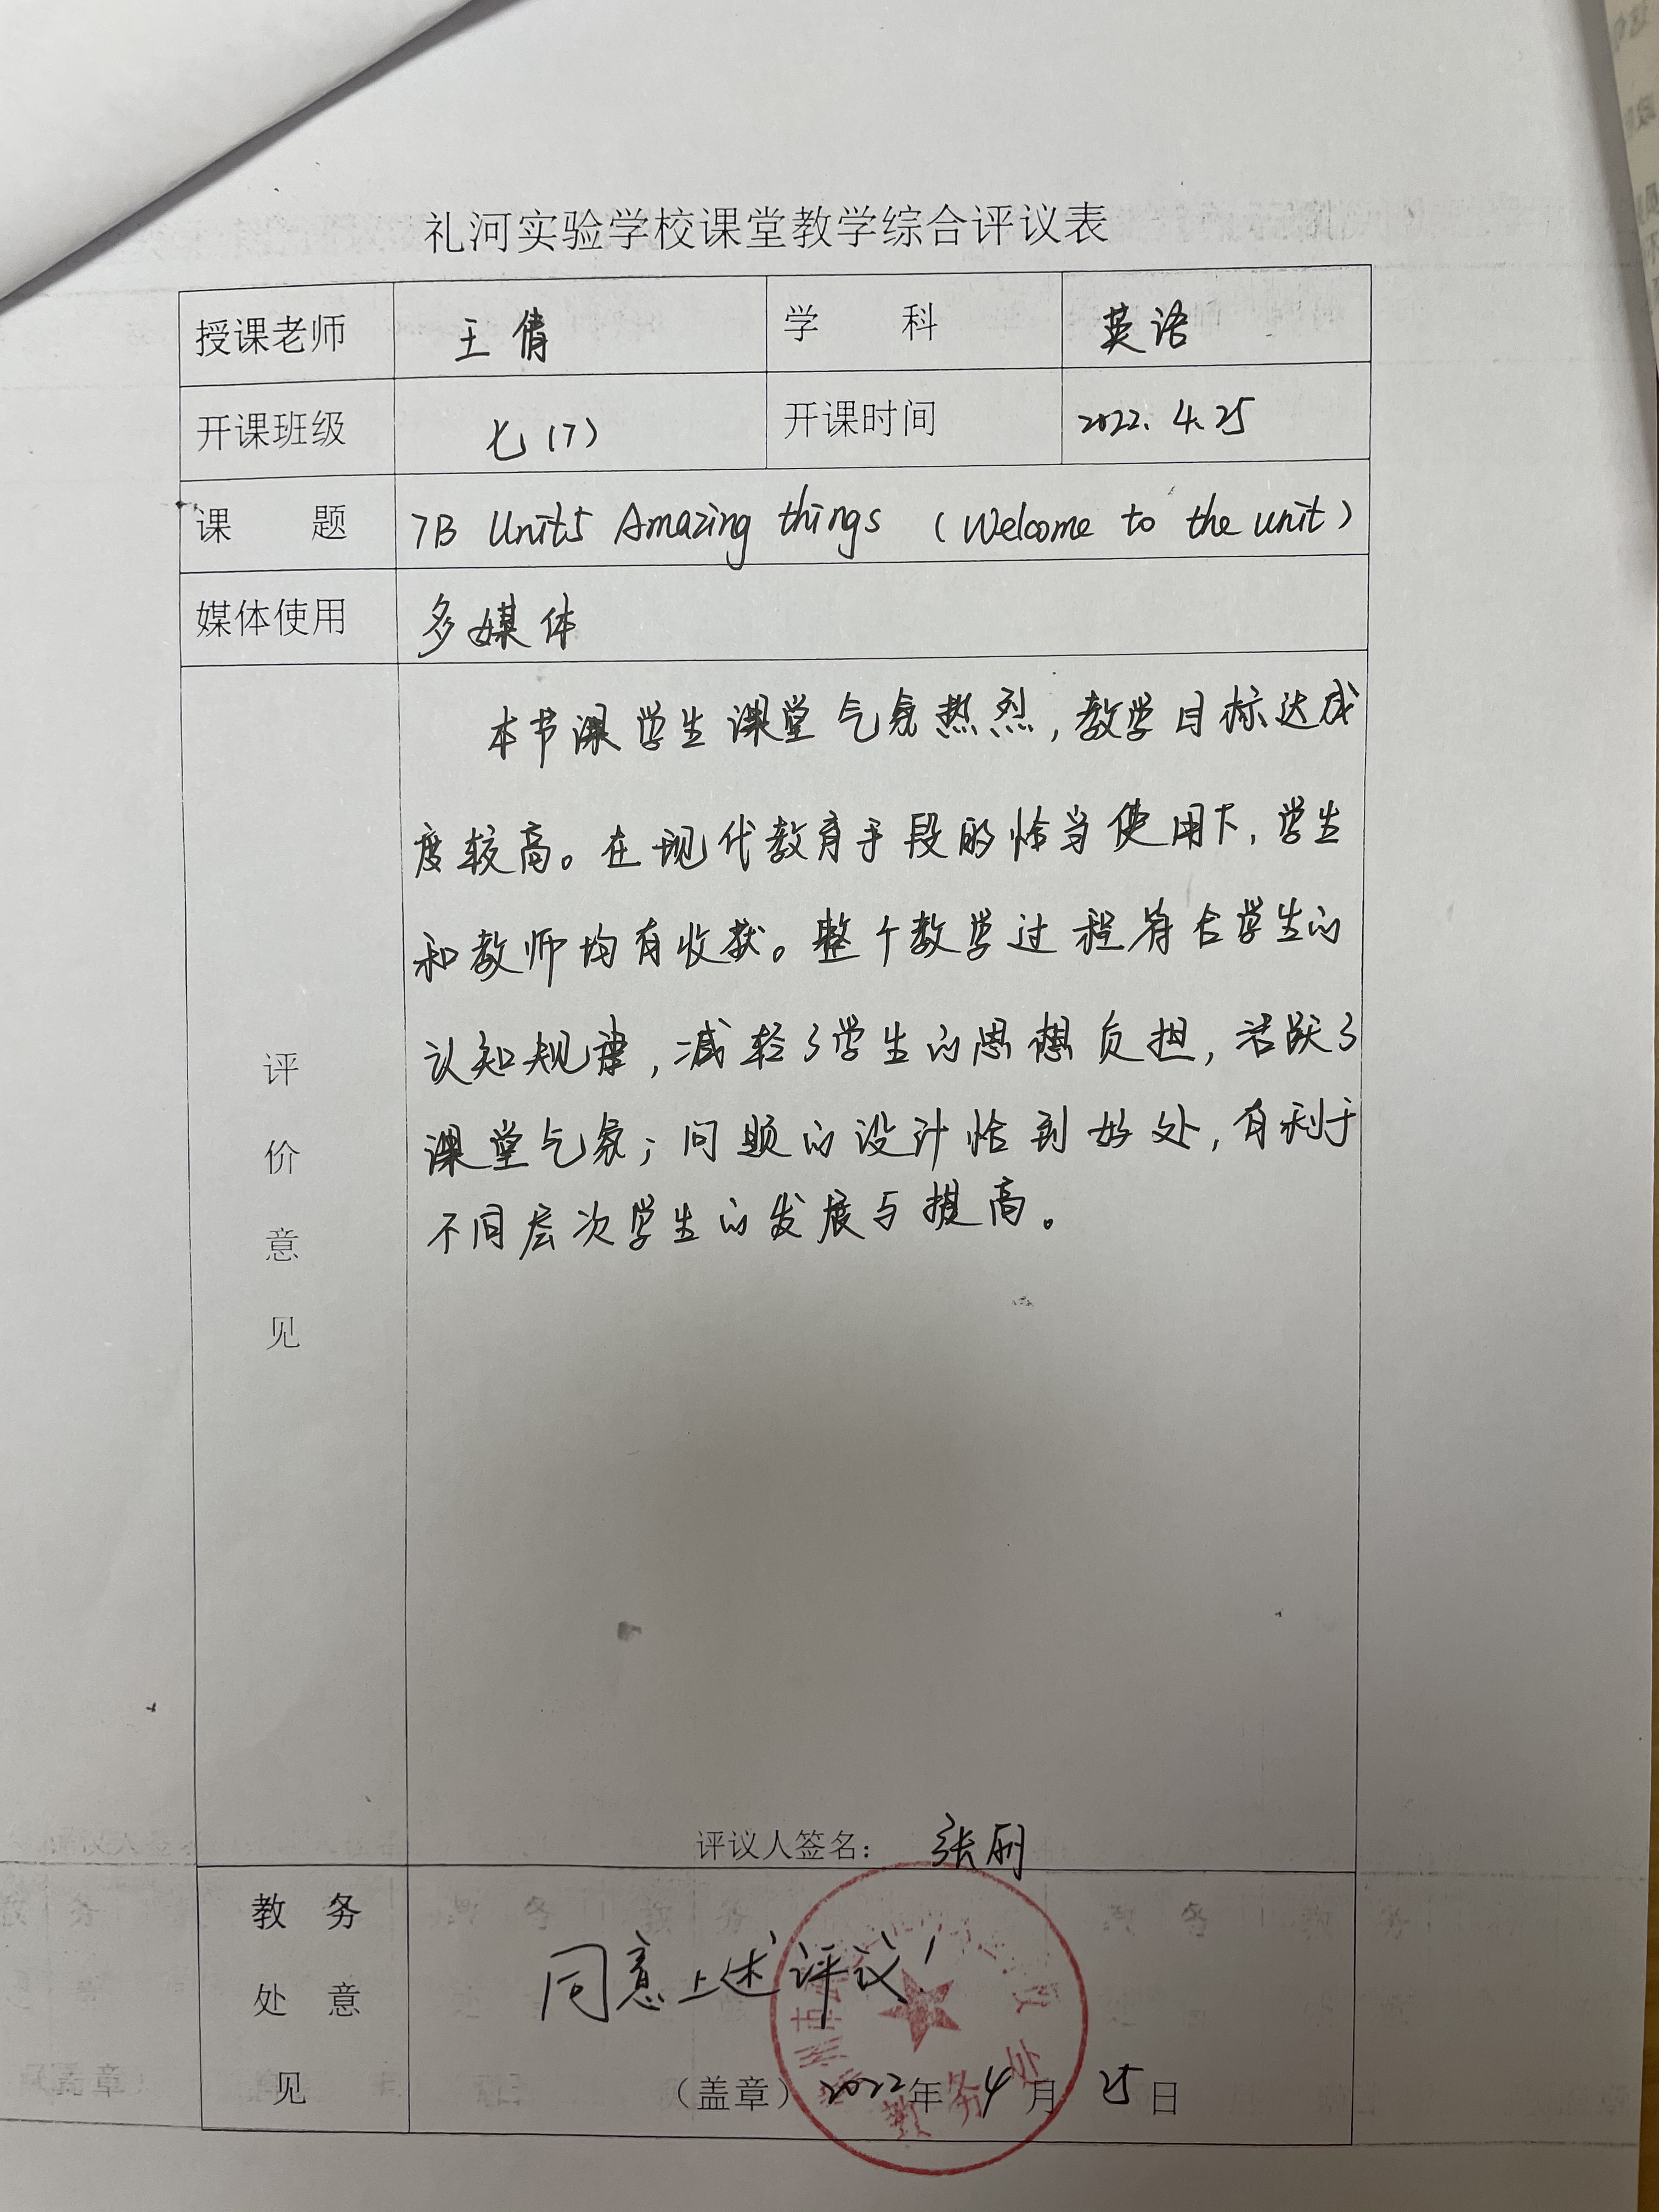 礼河实验学校课堂教学综合评议表
授课老师 王倩 学 科 英语
开课班级 七(7) 开课时间 2022.4.25
课 题 7B Unit5 Amazing things (Welcome to the unit)
媒体使用 多媒体
评价意见
本节课学生课堂气氛热烈,教学目标达成
度较高。在现代教育手段的恰当使用下,学生
和教师均有收获。整个教学过程符合学生的
认知规律,减轻了学生的思想负担,活跃了
课堂气氛;问题的设计恰到好处,有利于
不同层次学生的发展与提高。
评议人签名: 张丽
教务处意见
同意上述评议!
(盖章) 2022年 4月 25日
教务处